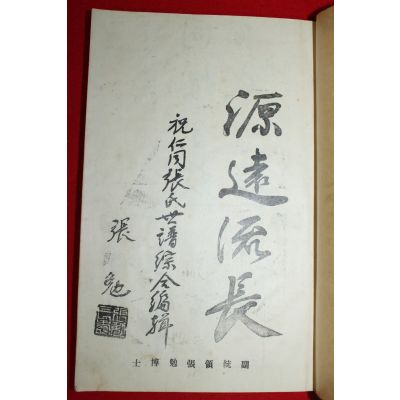 源遠流長
祝仁同張氏世譜綜合編輯
張勉
副統領張勉博士